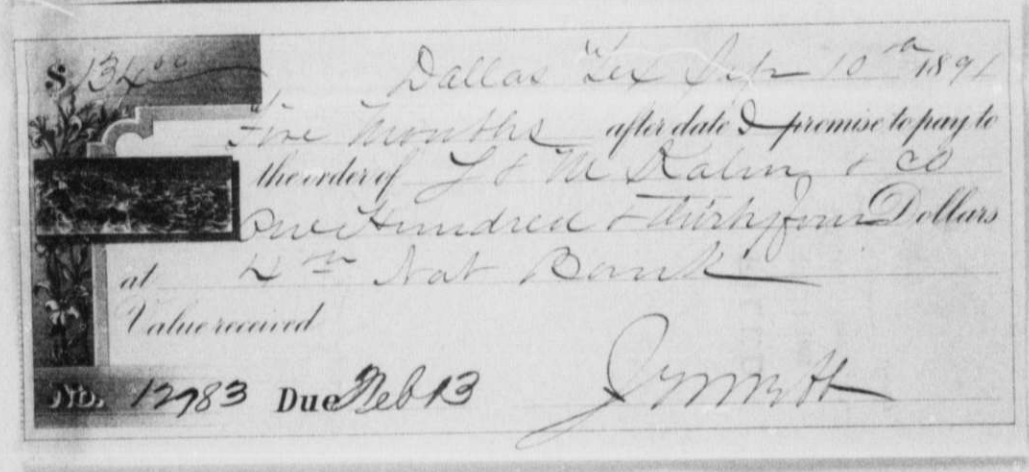 $ 134 00 Dallas Tex Sep 10th 1891
Five Months after date I promise to pay to
the order of L & M Kahn & Co
One Hundred & Thirty four Dollars
at 4th Nat Bank
Value received
No. 12983 Due Feb 13